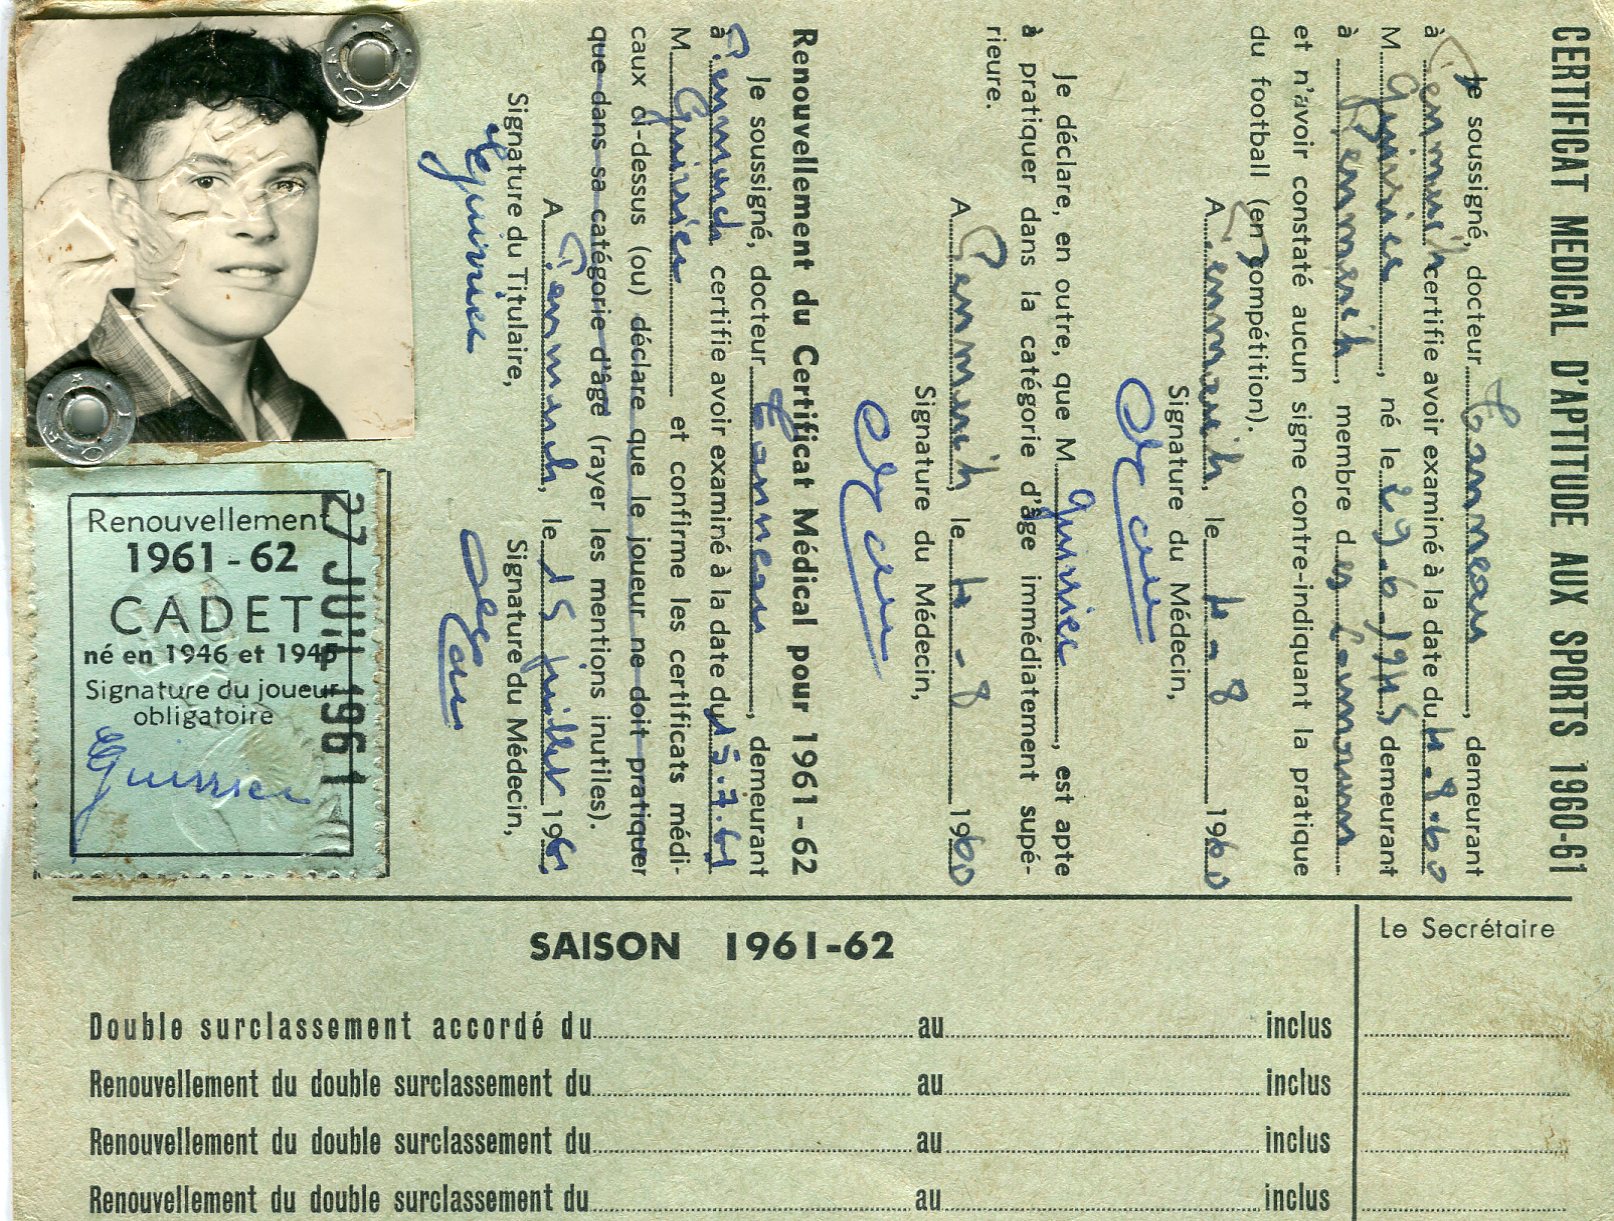 CERTIFICAT MEDICAL D'APTITUDE AUX SPORTS 1960-61
Je soussigné, docteur, demeurant
à certifie avoir examiné à la date du 4.8.60
M Guirriec, né le 29.6.1945, demeurant
à, membre des
et n'avoir constaté aucun signe contre-indiquant la pratique
du football (en compétition).
A, le 4-8 1960
Signature du Médecin,
Je déclare, en outre, que M Guirriec, est apte
à pratiquer dans la catégorie d'âge immédiatement supé-
rieure.
A, le 4-8 1960
Signature du Médecin,
Renouvellement du Certificat Médical pour 1961-62
Je soussigné, docteur, demeurant
à certifie avoir examiné à la date du 15.7.61
M Guirriec et confirme les certificats médi-
caux ci-dessus (ou) déclare que le joueur ne doit pratiquer
que dans sa catégorie d'âge (rayer les mentions inutiles).
A, le 15 juillet 1961
Signature du Titulaire, Signature du Médecin,
Guirriec
Renouvellement
1961-62
CADET
né en 1946 et 1945
Signature du joueur
obligatoire
Guirriec
27 JUIL 1961
SAISON 1961-62
Le Secrétaire
Double surclassement accordé du au inclus
Renouvellement du double surclassement du au inclus
Renouvellement du double surclassement du au inclus
Renouvellement du double surclassement du au inclus